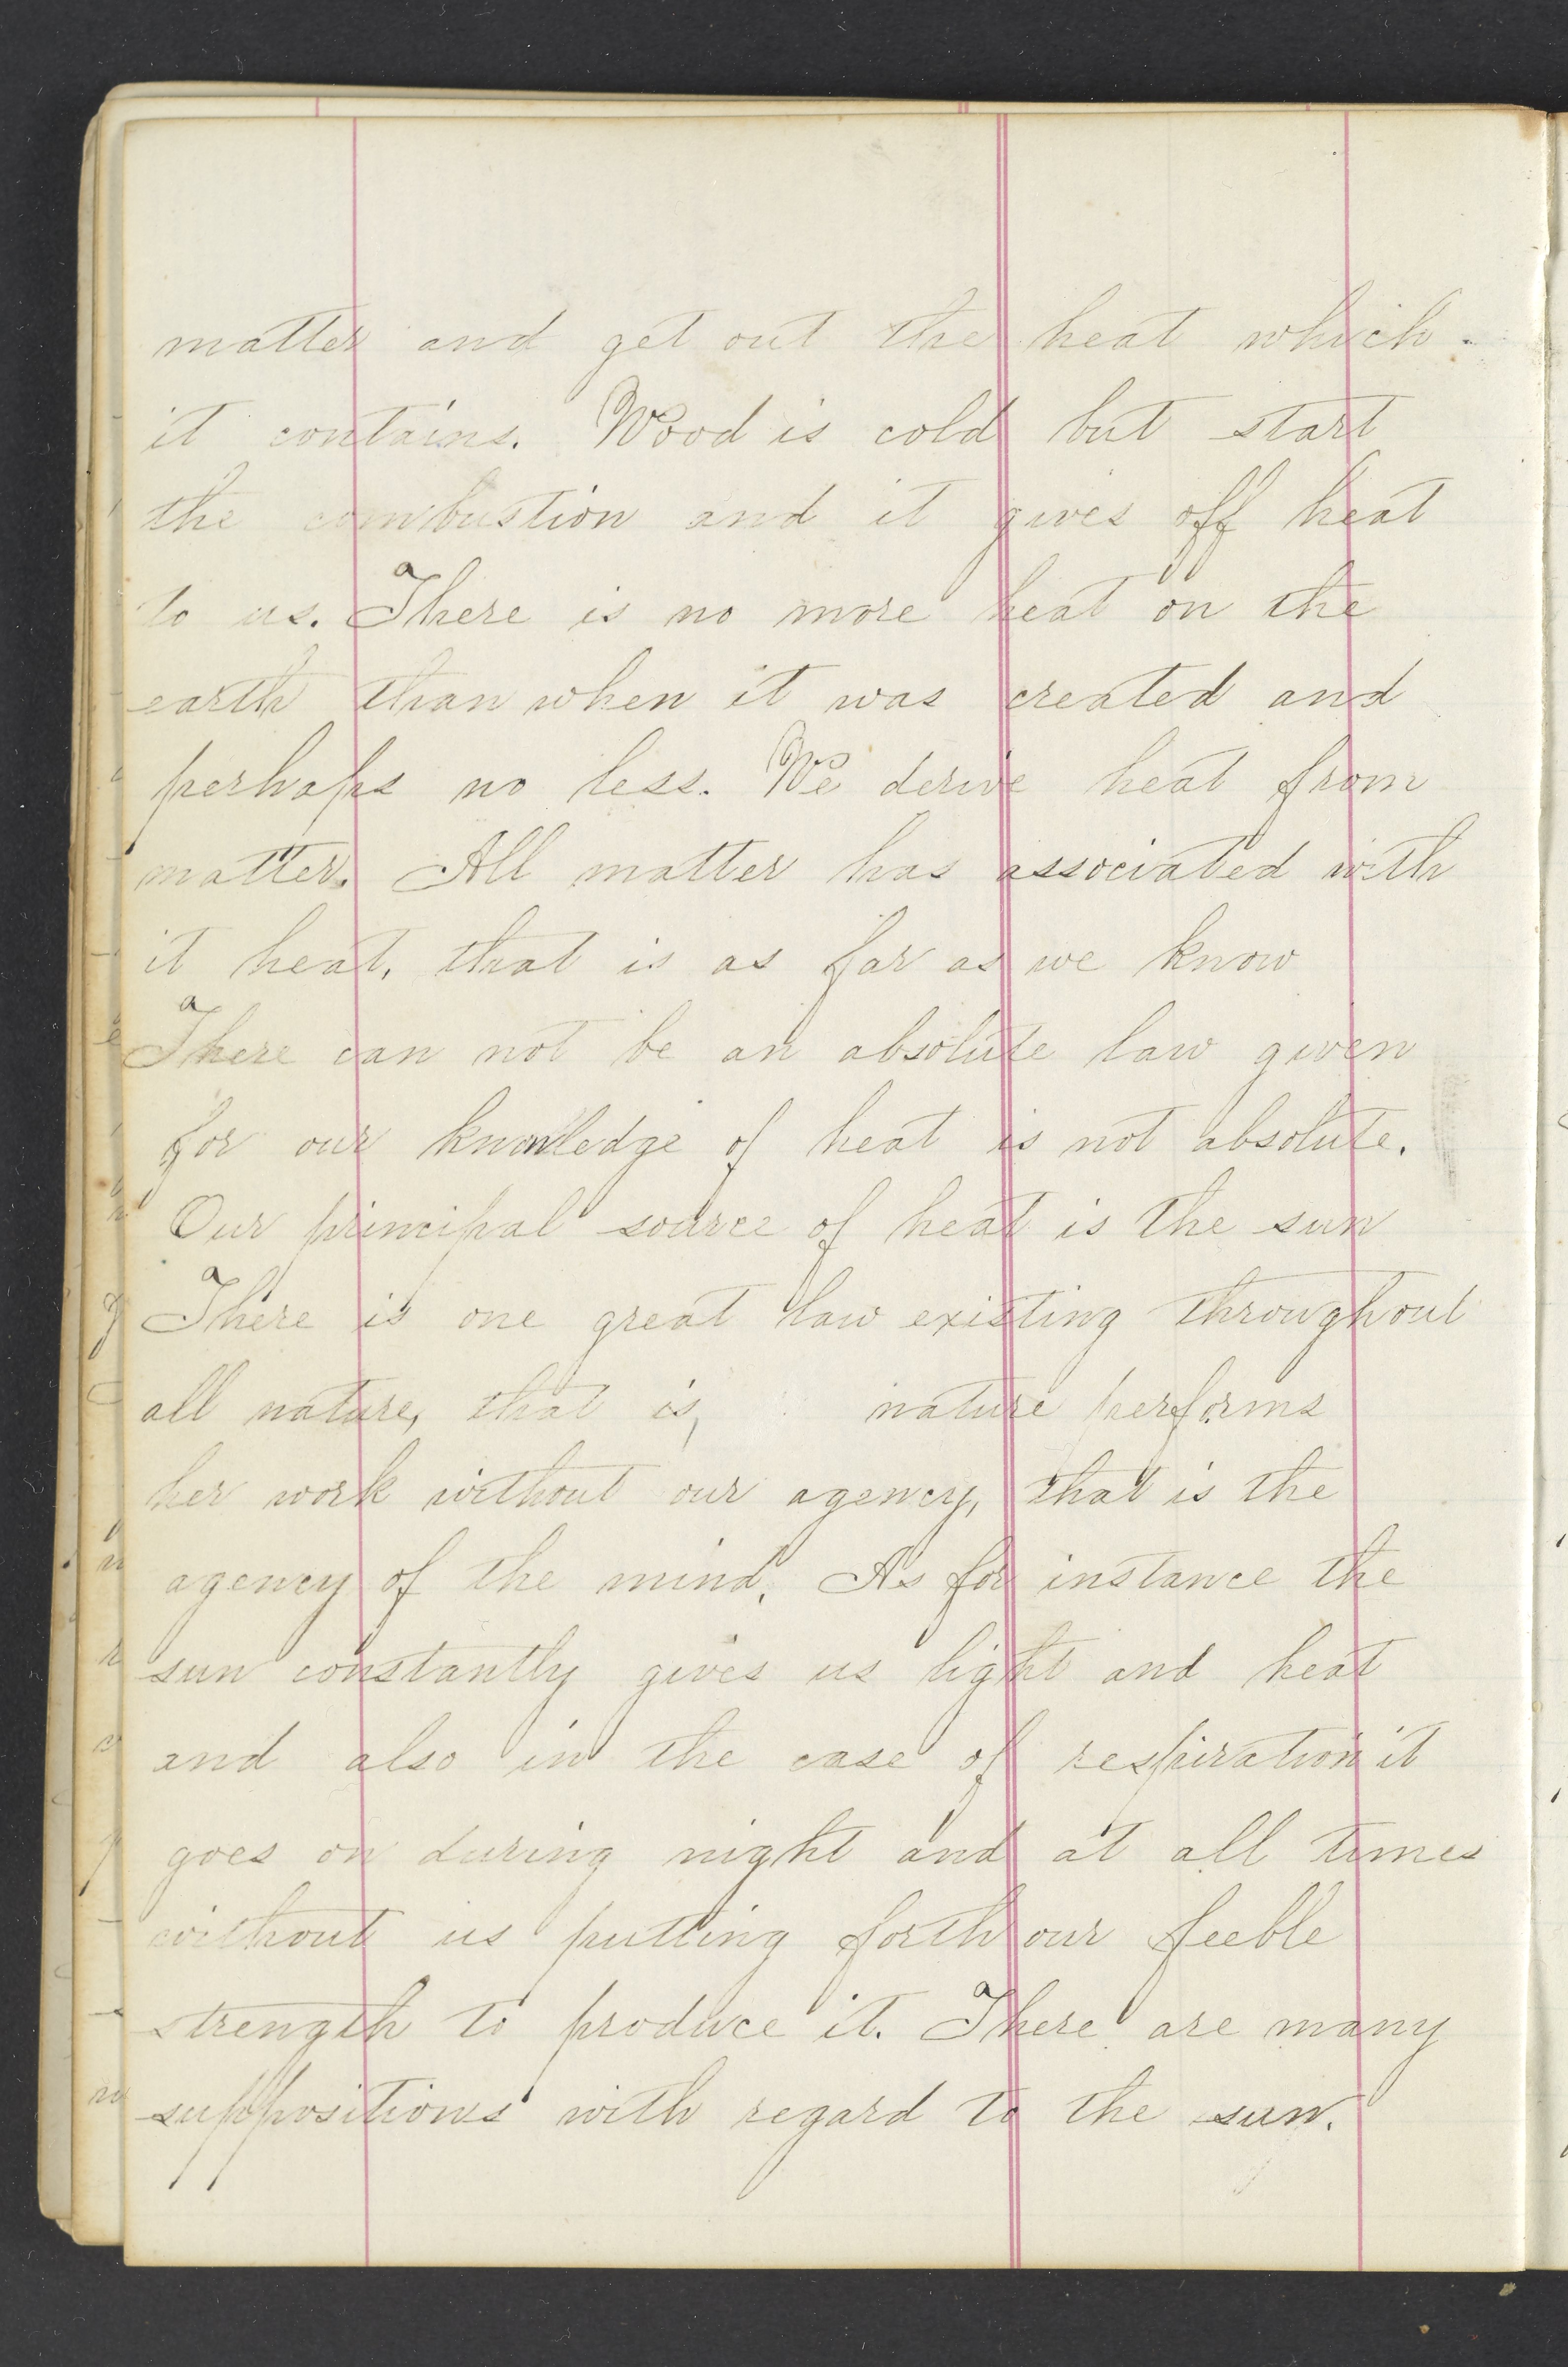 matter and get out the heat which
it contains. Wood is cold but start
the combustion and it gives off heat
to us. There is no more heat on the
earth than when it was created and
perhaps no less. We derive heat from
matter. All matter has associated with
it heat, that is as far as we know
There can not be an absolute law given
for our knowledge of heat is not absolute.
Our principal source of heat is the sun
There is one great law existing throughout
all nature, that is, nature performs
her work without our agency, that is the
agency of the mind. As for instance the
sun constantly gives us light and heat
and also in the case of respiration it
goes on during night and at all times
without us putting forth our feeble
strength to produce it. There are many
suppositions with regard to the sun.